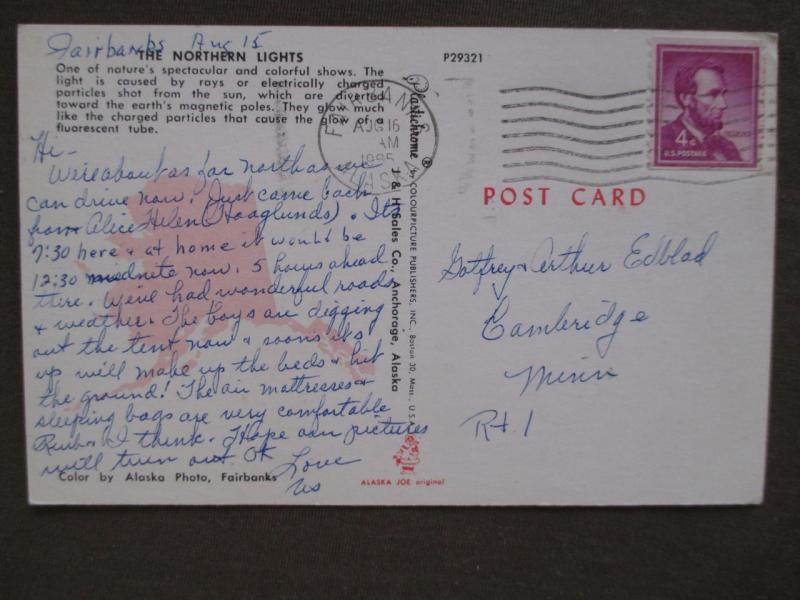 Fairbanks Aug 15
THE NORTHERN LIGHTS
One of nature's spectacular and colorful shows. The
light is caused by rays or electrically charged
particles shot from the sun, which are diverted
toward the earth's magnetic poles. They glow much
like the charged particles that cause the glow of a
fluorescent tube.
Hi -
We're about as far north as we
can drive now. Just came back
from Alice Helen (Hoaglunds). Its
7:30 here & at home it would be
12:30 midnite now. 5 hours ahead
there. We've had wonderful roads
& weather. The boys are digging
out the tent now & soon its
up we'll make up the beds & hit
the ground! The air mattresses &
sleeping bags are very comfortable
Reub & I think. Hope our pictures
will turn out OK
Love
Us
Color by Alaska Photo, Fairbanks
Plastichrome ® by COLOURPICTURE PUBLISHERS, INC., Boston 30, Mass., U.S.
J & H Sales Co., Anchorage, Alaska
ALASKA JOE original
P29321
AUG 16
AM
4¢
U.S. POSTAGE
POST CARD
Gotfrey & Arthur Edblad
Cambridge
Minn
Rt. 1